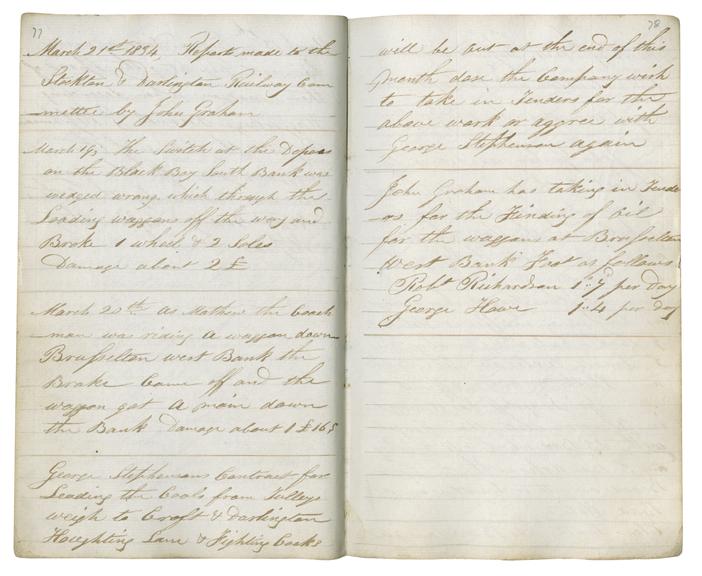 77
March 21st 1834, Reports made to the
Stockton & Darlington Railway Com
mettee by John Graham
March 19, The Switch at the Depos
on the Black Boy South Bank was
wedged wrong which through the
Leading waggons off the way and
Broke 1 wheel & 2 Soles
Damage about 2£
March 20th As Mathew the Coach
man was riding A waggon down
Brusselton west Bank the
Brake Came off and the
waggon got A main down
the Bank Damage about 1£ 16s
George Stephensons Contract for
Leading the Coals from Tulleys
weigh to Croft & Darlington
Haughting Lane & Fighting Cocks
78
will be out at the end of this
Month dose the Company wish
to take in Tenders for the
above work or aggree with
George Stephenson again
John Graham has taking in Tende
rs for the Finding of Oil
for the waggons at Brusselton
West Bank Foot as follows
Robt Richardson 1..7 per day
George Howe 1..4 per day